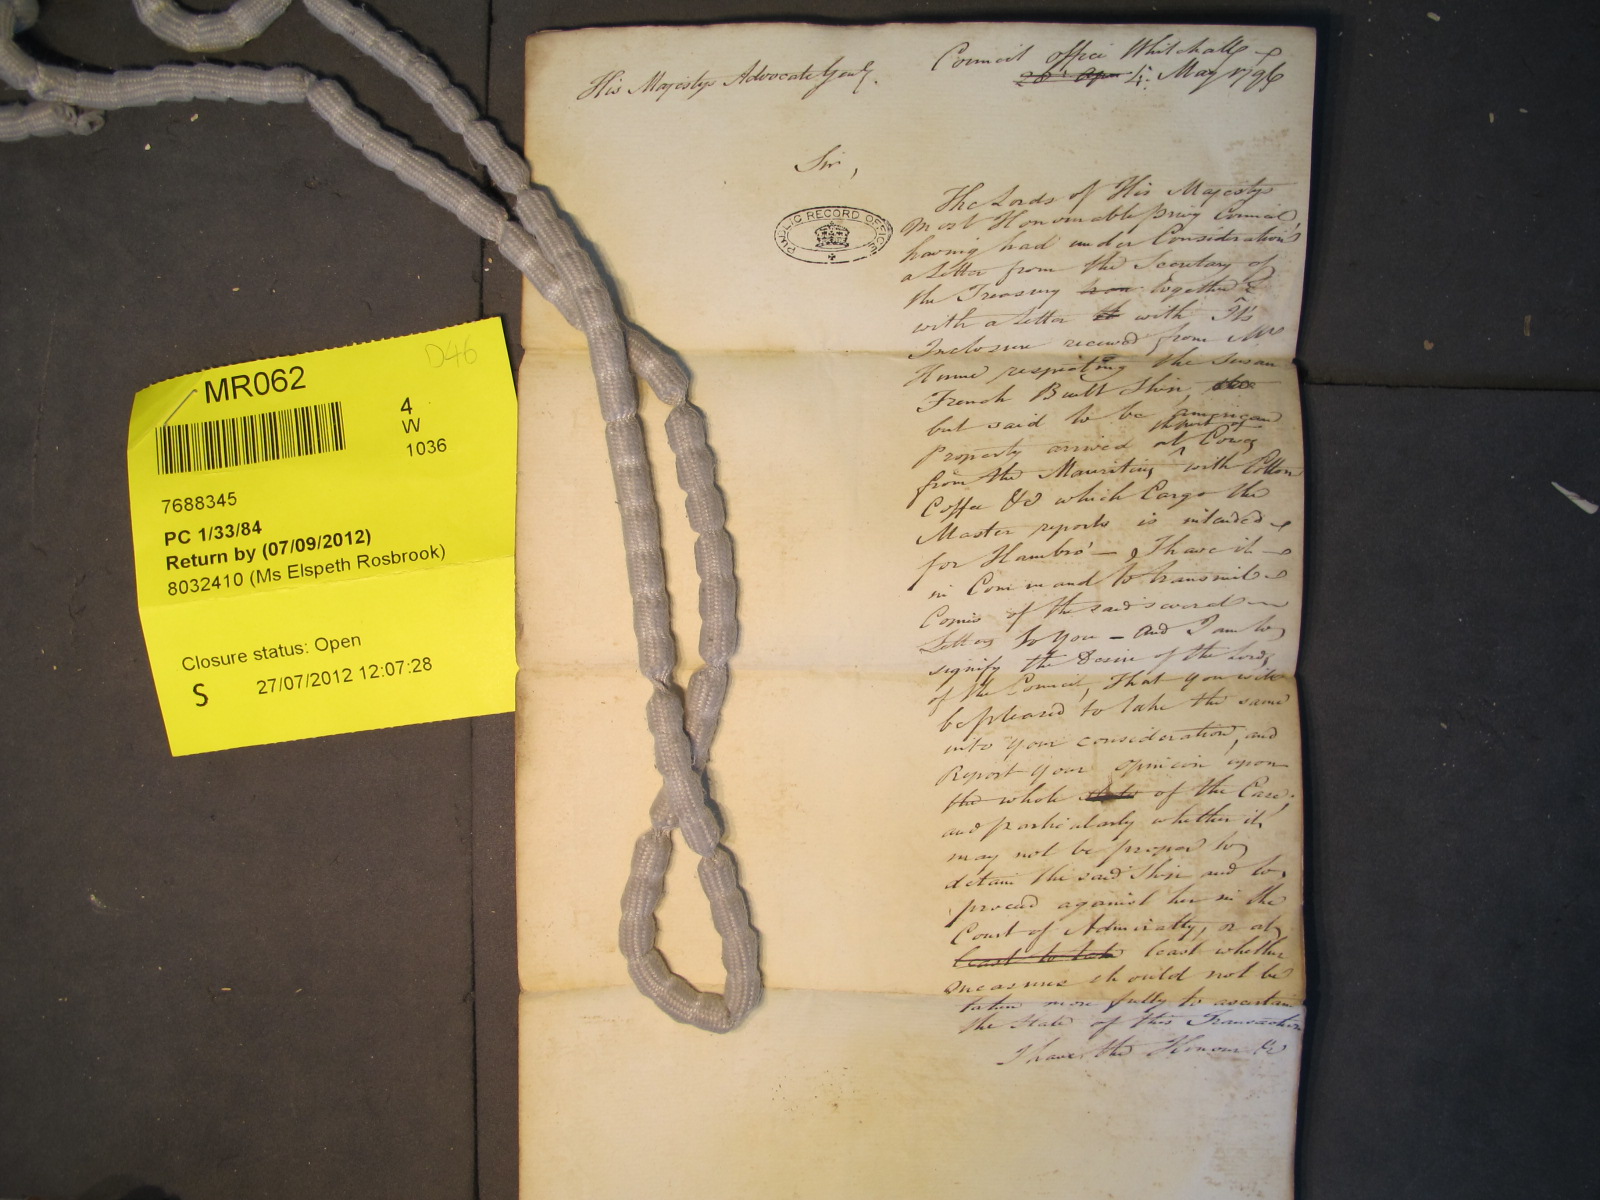 D46
MR062
4
W
1036
7688345
PC 1/33/84
Return by (07/09/2012)
8032410 (Ms Elspeth Rosbrook)
Closure status: Open
S 27/07/2012 12:07:28
His Majestys Advocate Genl.
Council office Whitehall
4. May 1796
Sir,
PUBLIC RECORD OFFICE
The Lords of His Majestys
Most Honourable Privy Council
having had under Consideration
a Letter from the Secretary of
the Treasury together
with a Letter with Its
Inclosure received from Mr
Hume respecting the Susan
French Built Ship,
but said to be american
the Port of
Property arrived at Cowes
from the Mauritius with Cotton
Coffee &c which Cargo the
Master reports is intended
for Hambro' — I have it
in Command to transmit
Copies of the said several
Letters to You — And I am to
signify the Desire of the Lords
of the Council, That you will
be pleased to take the same
into Your consideration, and
Report Your opinion upon
the whole of the Case,
and particularly whether it
may not be proper to
detain the said Ship and to
proceed against her in the
Court of Admiralty, or at
least to take least whether
measures should not be
taken more fully to ascertain
the State of this Transaction
I have the Honour &c